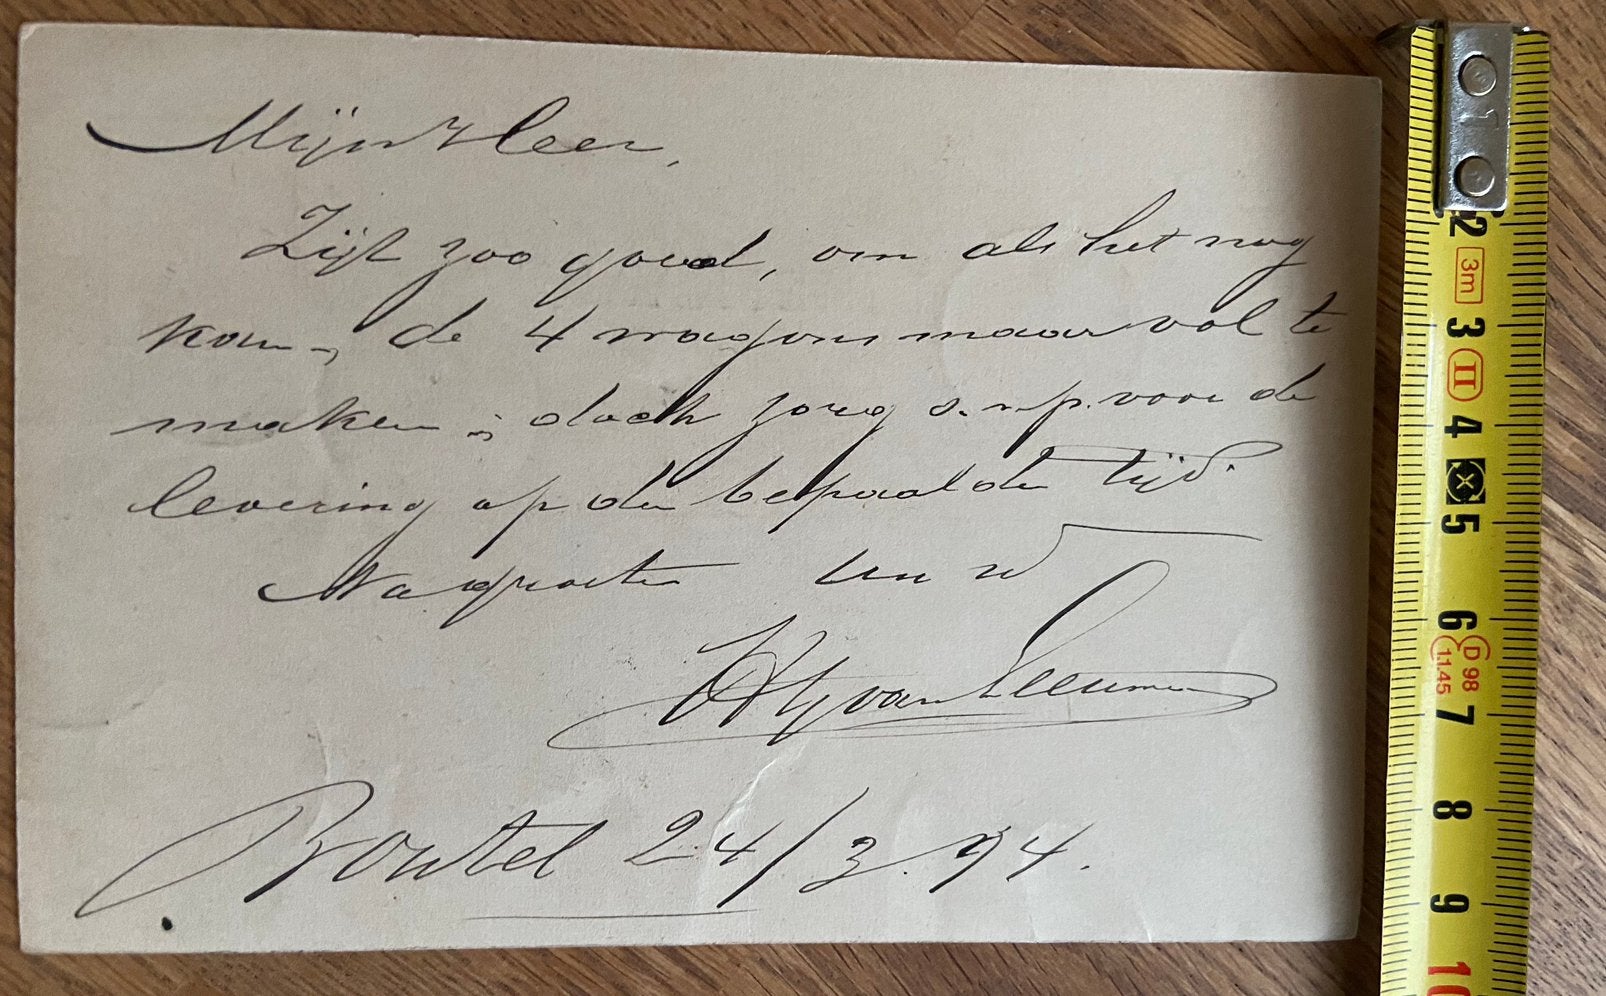 Mijn Heer,
Zijt zoo goed, om als het nog
kan, de 4 wagons maar vol te
maken; doch zorg s.v.p. voor de
levering op den bepaalden tijd.
Na groeten Uw
van Leeuwen
Boxtel 24/3.94.
1
2
3m
3
II
4
5
6
D 98
11.45
7
8
9
10